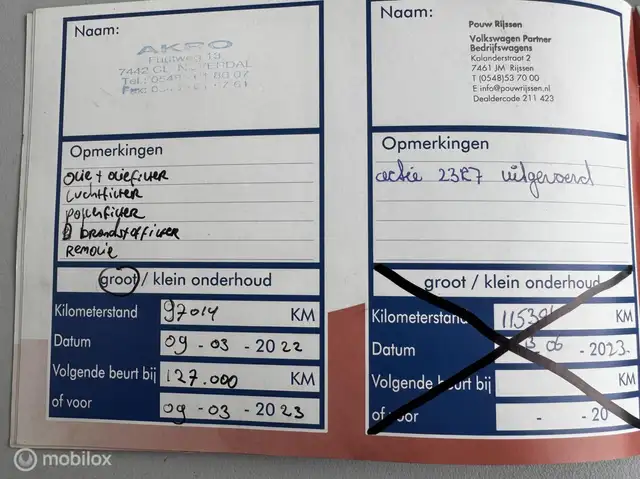 Naam:
AKRO
7442 
Tel.: 0548
Fax:
Opmerkingen
olie + oliefilter
luchtfilter
pollenfilter
brandstoffilter
remolie
groot / klein onderhoud
Kilometerstand 97014 KM
Datum 09 - 03 - 2022
Volgende beurt bij 127.000 KM
of voor 09 - 03 - 2023
Naam:
Pouw Rijssen
Volkswagen Partner
Bedrijfswagens
Kalanderstraat 2
7461 JM Rijssen
T (0548)53 70 00
E info@pouwrijssen.nl
Dealdercode 211 423
Opmerkingen
actie 23R7 uitgevoerd
groot / klein onderhoud
Kilometerstand KM
Datum 06 - 2023-
Volgende beurt bij KM
of voor - - 20
mobilox